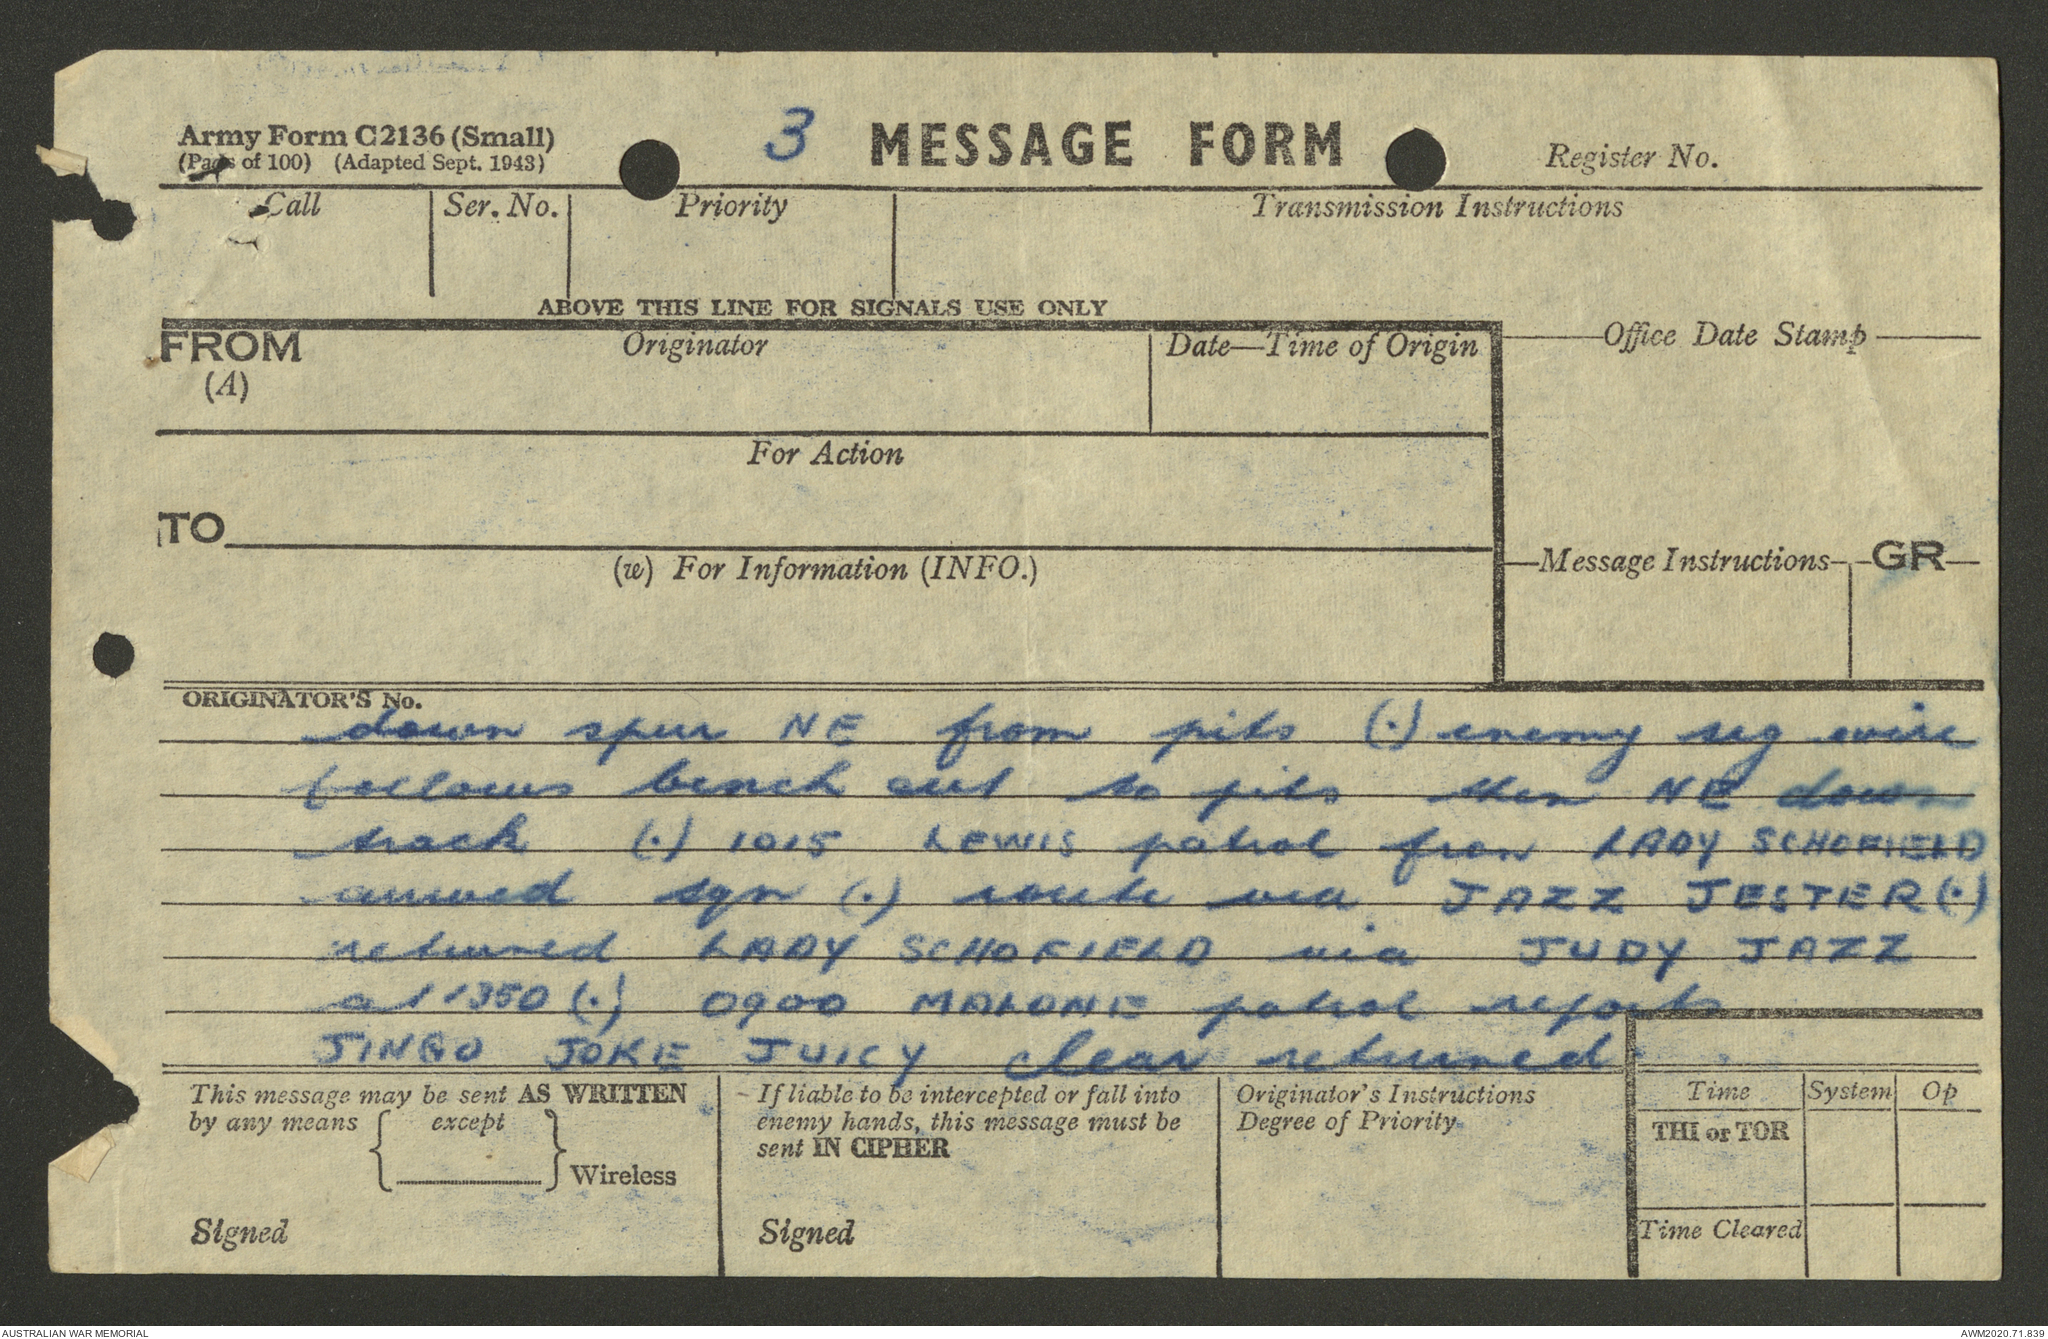 Army Form C2136 (Small)
(Pads of 100) (Adapted Sept. 1943)
3 MESSAGE FORM
Register No.
Call
Ser. No.
Priority
Transmission Instructions
ABOVE THIS LINE FOR SIGNALS USE ONLY
FROM
(A)
Originator
Date—Time of Origin
Office Date Stamp
For Action
TO
(w) For Information (INFO.)
Message Instructions
GR
ORIGINATOR'S No.
down spur NE from pits (.) enemy sig wire
follows bench cut to pits then NE down
track (.) 1015 LEWIS patrol from LADY SCHOFIELD
arrived sgn (.) route via JAZZ JESTER (.)
returned LADY SCHOFIELD via JUDY JAZZ
at 1350 (.) 0900 MALONE patrol reports
JINGO JOKE JUICY clear returned
This message may be sent AS WRITTEN
by any means { except } Wireless
Signed
If liable to be intercepted or fall into
enemy hands, this message must be
sent IN CIPHER
Signed
Originator's Instructions
Degree of Priority
Time
System
Op
THI or TOR
Time Cleared
AUSTRALIAN WAR MEMORIAL
AWM2020.71.839